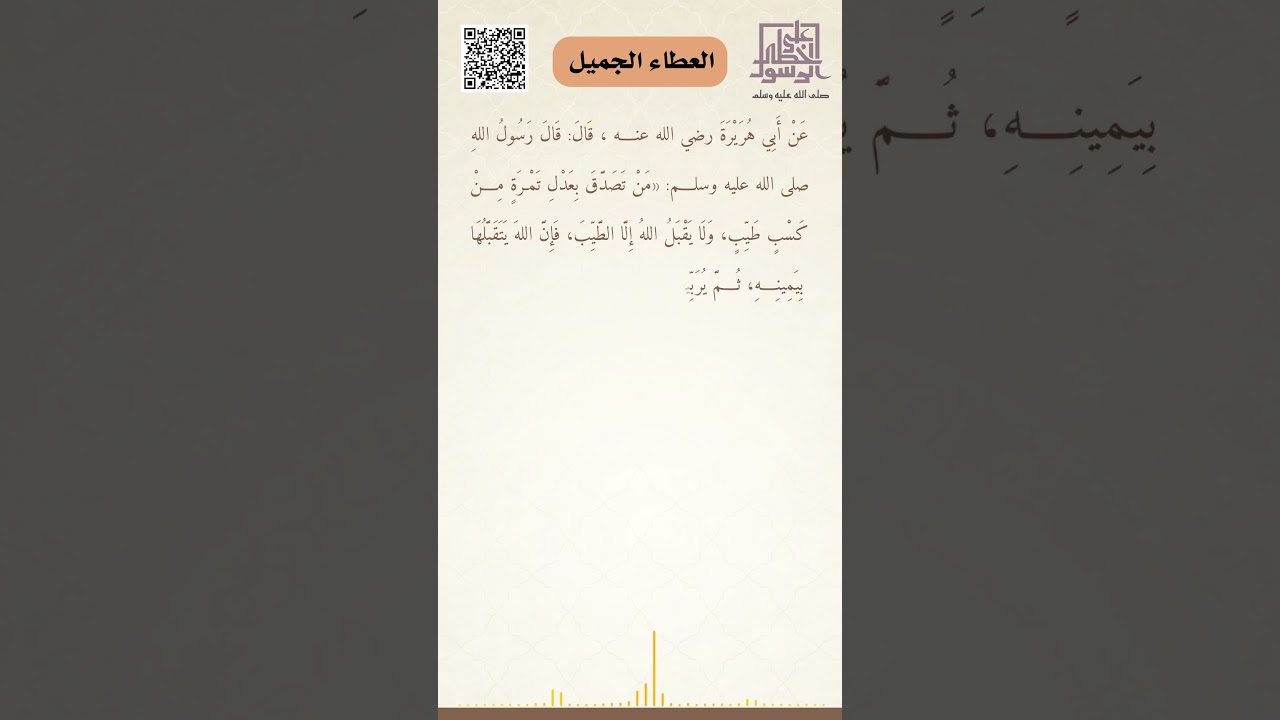 العطاء الجميل
على خطى الرسول
صلى الله عليه وسلم
عَنْ أَبِي هُرَيْرَةَ رضي الله عنه ، قَالَ: قَالَ رَسُولُ اللهِ
صلى الله عليه وسلم: «مَنْ تَصَدَّقَ بِعَدْلِ تَمْرَةٍ مِنْ
كَسْبٍ طَيِّبٍ، وَلَا يَقْبَلُ اللهُ إِلَّا الطَّيِّبَ، فَإِنَّ اللهَ يَتَقَبَّلُهَا
بِيَمِينِهِ، ثُمَّ يُرَبِّيـ
بِيَمِينِهِ، ثُمَّ